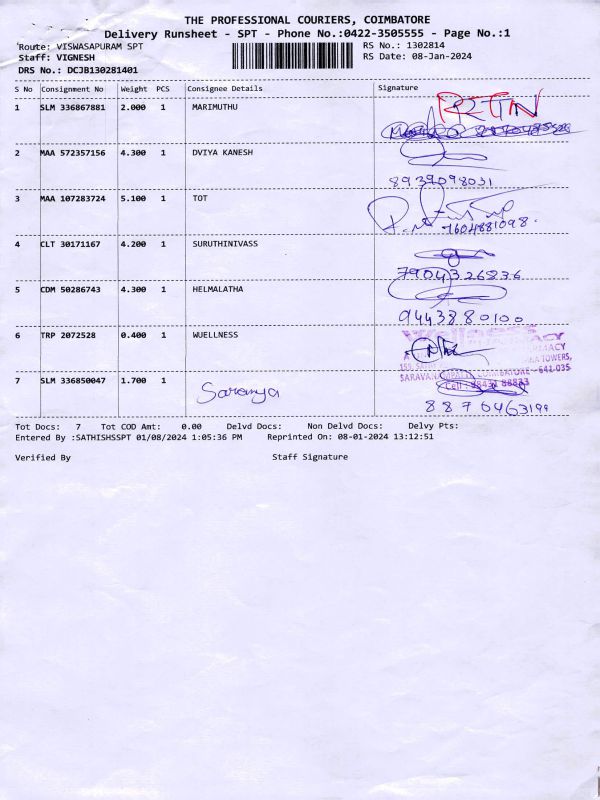 THE PROFESSIONAL COURIERS, COIMBATORE
Delivery Runsheet - SPT - Phone No.:0422-3505555 - Page No.:1
Route: VISWASAPURAM SPT RS No.: 1302814
Staff: VIGNESH RS Date: 08-Jan-2024
DRS No.: DCJB130281401
S No Consignment No Weight PCS Consignee Details Signature
1 SLM 336867881 2.000 1 MARIMUTHU RETIN
2 MAA 572357156 4.300 1 DVIYA KANESH
8939098031
3 MAA 107283724 5.100 1 TOT
7604881098.
4 CLT 30171167 4.200 1 SURUTHINIVASS
7904326836
5 CDM 50286743 4.300 1 HELMALATHA
9443880100
6 TRP 2072528 0.400 1 WUELLNESS
Wellness
PHARMACY
TOWERS,
SARAVANAMPATTI, COIMBATORE - 641 035
7 SLM 336850047 1.700 1 Saranya
Cell : 98431 88833
8870463199
Tot Docs: 7 Tot COD Amt: 0.00 Delvd Docs: Non Delvd Docs: Delvy Pts:
Entered By :SATHISHSSPT 01/08/2024 1:05:36 PM Reprinted On: 08-01-2024 13:12:51
Verified By Staff Signature